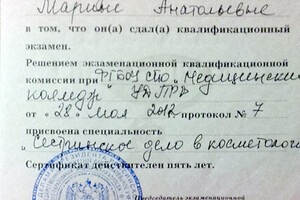 Марине Анатольевне
в том, что он(а) сдал(а) квалификационный
экзамен.
Решением экзаменационной квалификационной
комиссии при ФГБОУ СПО „Медицинский
колледж" УД ПРФ
от « 28 » мая 2012 протокол № 7
присвоена специальность
„Сестринское дело в косметологи
Сертификат действителен пять лет.
Председатель экзаменационной